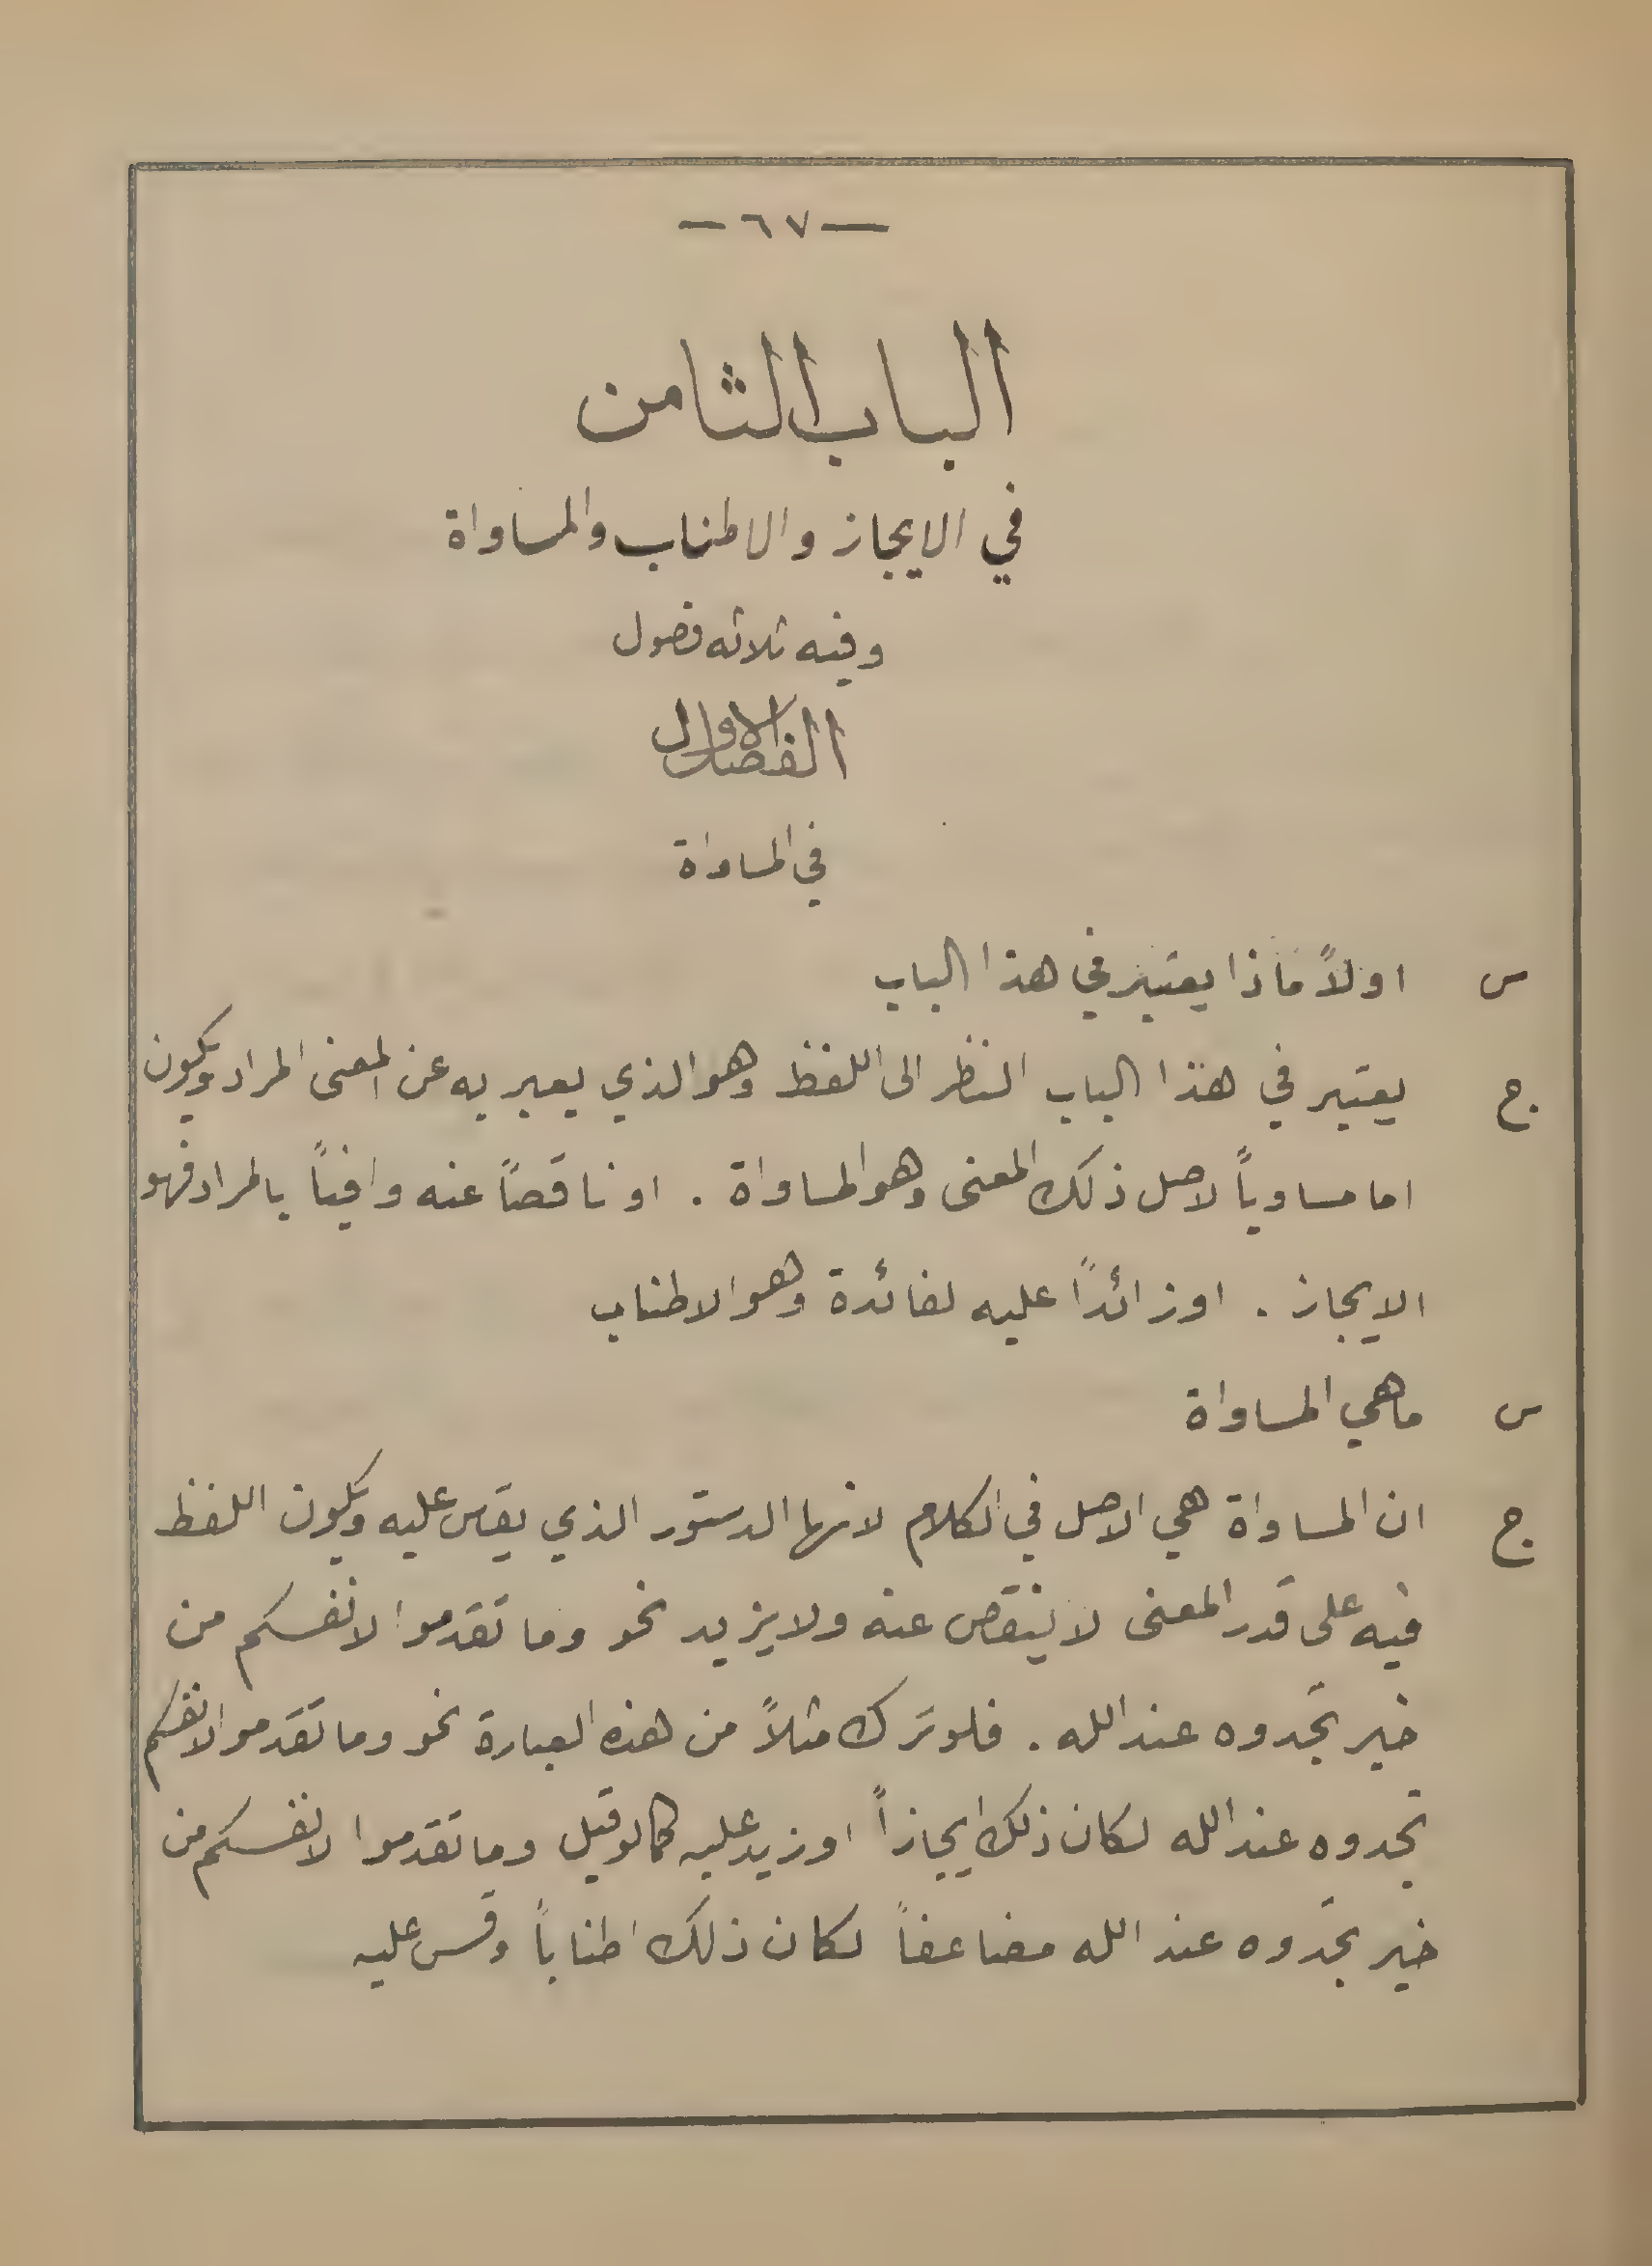 — ٦٧ —
الباب الثامن
في الايجاز والاطناب والمساواة
وفيه ثلاثه فصول
الفصل الاول
في المساواة
س اولاً ماذا يعتبر في هذا الباب
ج يعتبر في هذا الباب النظر الى اللفظ وهو الذي يعبر به عن المعنى المراد ويكون
اما مساوياً لاصل ذلك المعنى وهو المساواة . او ناقصاً عنه وافياً بالمراد فهو
الايجاز . او زائداً عليه لفائدة وهو الاطناب
س ماهي المساواة
ج ان المساواة هي الاصل في الكلام لانها الدستور الذي يقس عليه ويكون اللفظ
فيه على قدر المعنى لا ينقص عنه ولا يزيد نحو وما تقدموا لانفسكم من
خير تجدوه عند الله . فلو ترك مثلاً من هذه العبارة نحو وما تقدموا لانفسكم
تجدوه عند الله لكان ذلك ايجازاً او زيد عليه كما لو قيل وما تقدموا لانفسكم من
خير تجدوه عند الله مضاعفاً لكان ذلك اطناباً وقس عليه